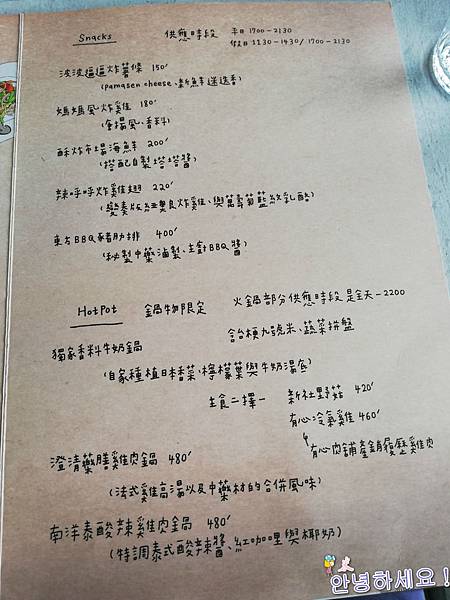 Snacks 供應時段 平日 1700-2130
假日 1130-1430/1700-2130
波波逼逼炸薯條 150'
(pamasen cheese、新鮮迷迭香)
媽媽風炸雞 180'
(食揚風、香料)
酥炸市場海鮮 200'
(搭配自製塔塔醬)
辣呼呼炸雞翅 220'
(變奏版紐奧良炸雞、與萬壽菊藍紋乳酪)
東方BBQ豬肋排 400'
(秘製中藥滷製、主廚BBQ醬)
HotPot 鍋物限定 火鍋部分供應時段是全天-2200
飴梗九號米、蔬菜拼盤
獨家香料牛奶鍋
(自家種植日本香菜、檸檬葉與牛奶湯底)
主食二擇一 新社野菇 420'
有心冷氣雞 460'
有心肉舖產銷履歷雞肉
澄清藥膳雞肉鍋 480'
(法式雞高湯以及中藥材的合併風味)
南洋泰酸辣雞肉鍋 480'
(特調泰式酸辣醬、紅咖哩與椰奶)
안녕하세요!